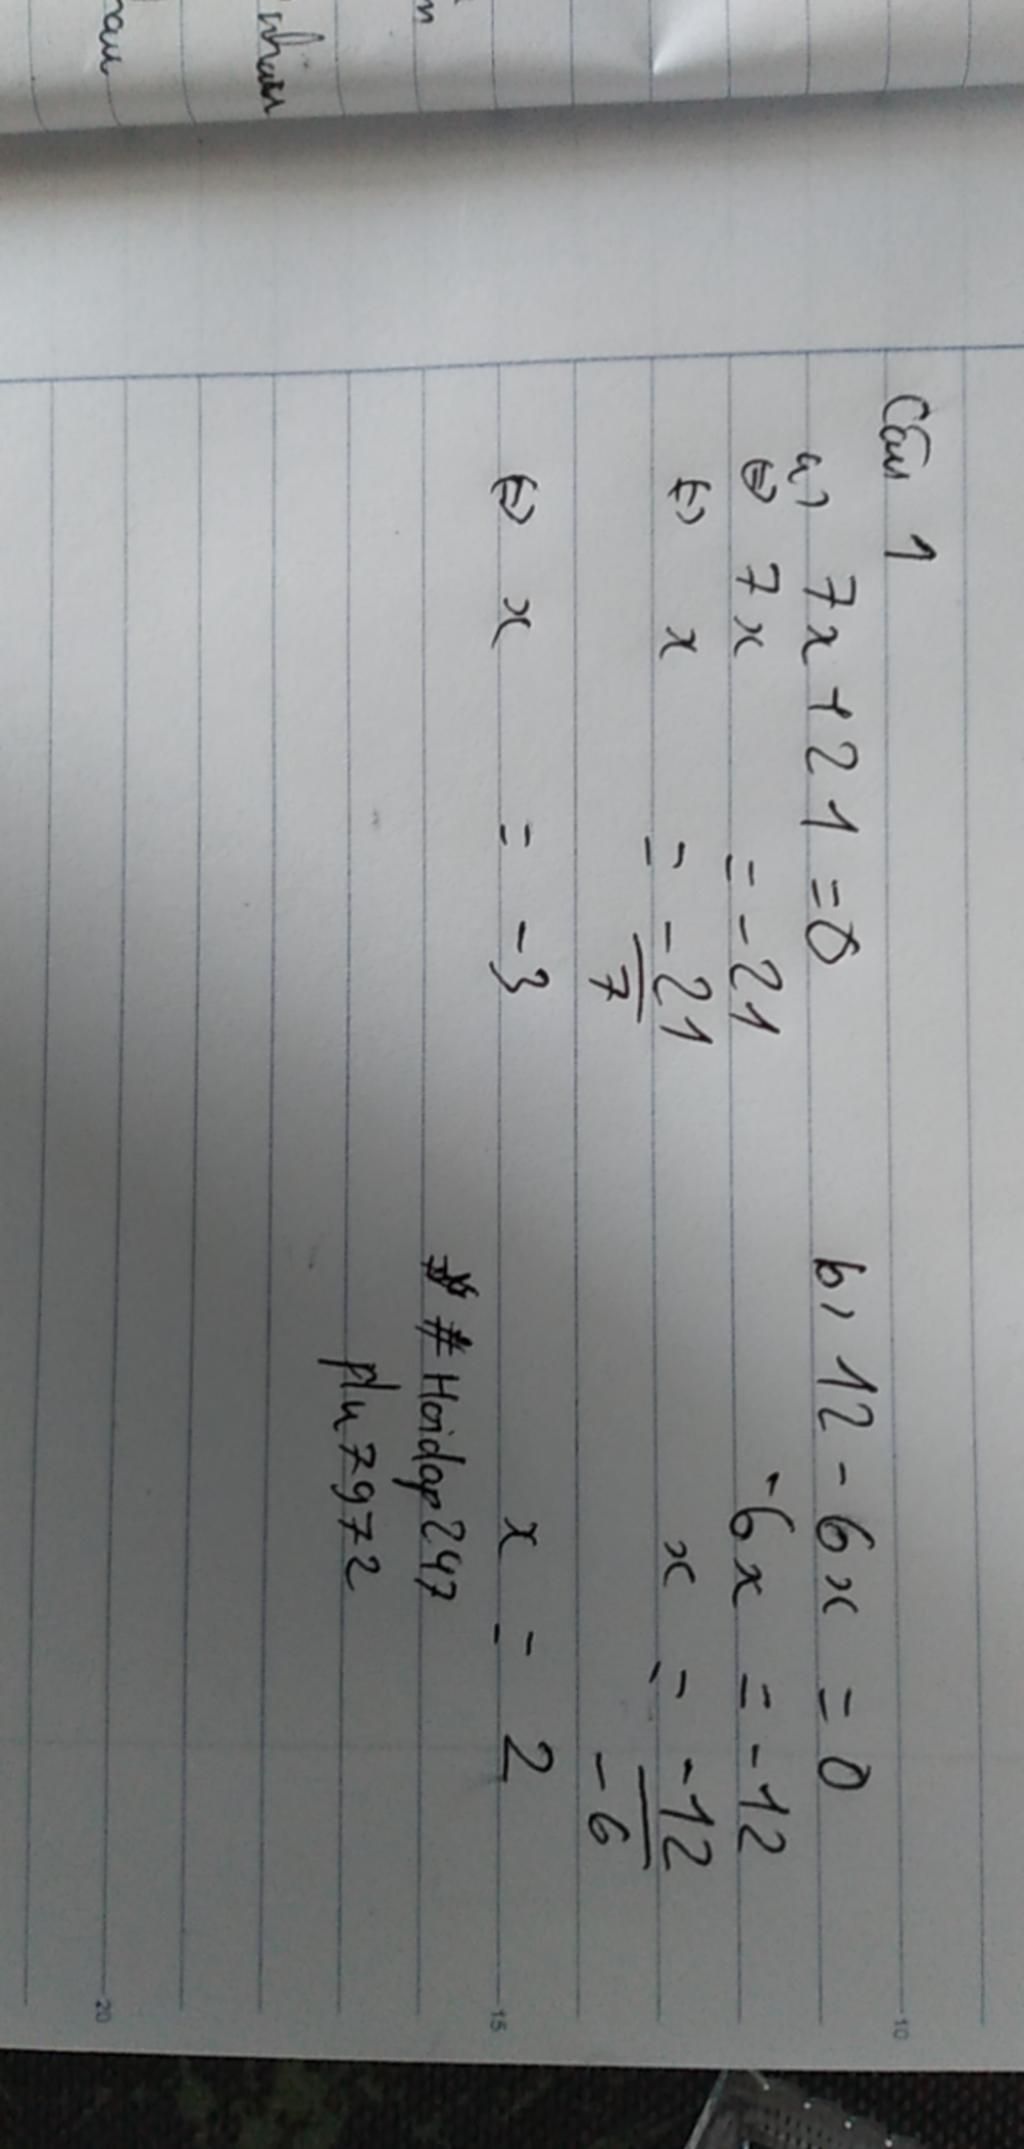 Câu 1
a) 7x + 21 = 0
⇔ 7x = -21
⇔ x = -21/7
⇔ x = -3
b) 12 - 6x = 0
-6x = -12
x = -12/-6
x = 2
# Hoidap247
plu7972
nhân
10
15
20